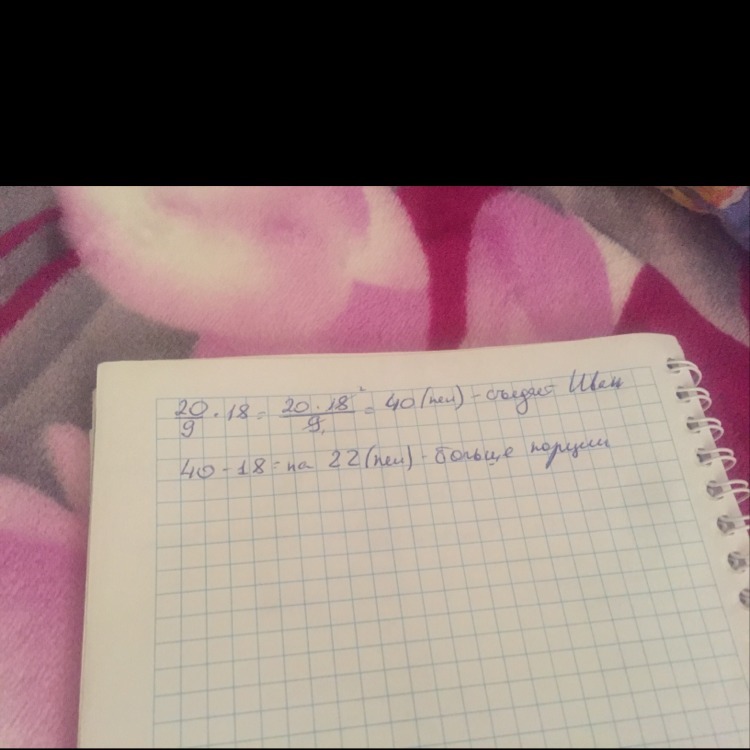 20/9 · 18 = 20 · 18²/9₁ = 40 (пел) - съедает Иван
40 - 18 = на 22 (пел) - больше порции